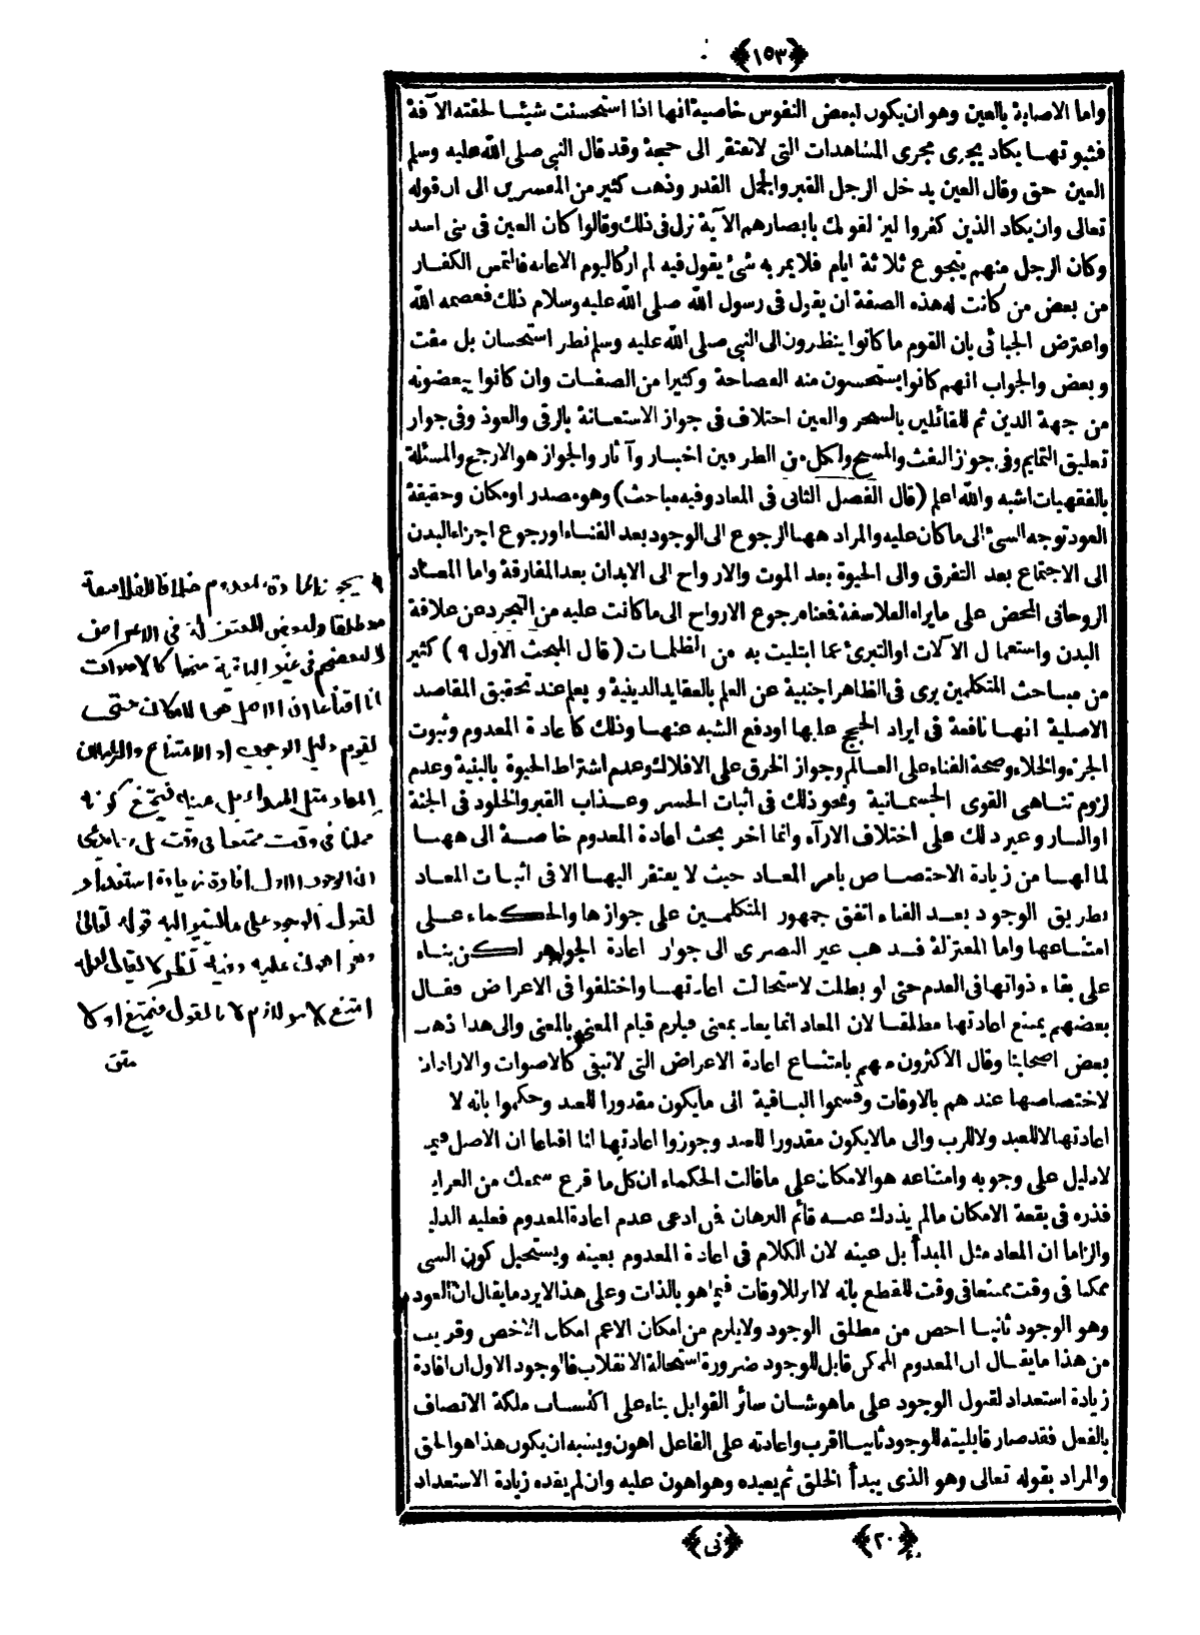 ﴿١٥٣﴾
واما الاصابة بالعين وهو ان يكون لبعض النفوس خاصية انها اذا استحسنت شيئا لحقته الآفة
فثبوتها يكاد يجرى مجرى المشاهدات التى لا تفتقر الى حجة وقد قال النبى صلى الله عليه وسلم
العين حق وقال العين يدخل الرجل القبر والجمل القدر وذهب كثير من المفسرين الى ان قوله
تعالى وان يكاد الذين كفروا ليزلقونك بابصارهم الآية نزل فى ذلك وقالوا كان العين فى بنى اسد
وكان الرجل منهم يتجوع ثلاثة ايام فلا يمر به شئ يقول فيه لم ار كاليوم الاعانه فالتمس الكفار
من بعض من كانت له هذه الصفة ان يقول فى رسول الله صلى الله عليه وسلام ذلك فعصمه الله
واعترض الجبائى بان القوم ما كانوا ينظرون الى النبى صلى الله عليه وسلم نظر استحسان بل مقت
وبعض والجواب انهم كانوا يستحسنون منه الفصاحة وكثيرا من الصفات وان كانوا يبغضونه
من جهة الدين ثم للقائلين بالسحر والعين اختلاف فى جواز الاستعانة بالرقى والعوذ وفى جواز
تعليق التمايم وفى جواز النفث والمسح ولكل من الطرفين اخبار وآثار والجواز هو الارجع والمسئلة
بالفقهيات اشبه والله اعلم (قال الفصل الثانى فى المعاد وفيه مباحث) وهو مصدر او مكان وحقيقة
العود توجه الشئ الى ما كان عليه والمراد ههنا الرجوع الى الوجود بعد الفناء او رجوع اجزاء البدن
الى الاجتماع بعد التفرق والى الحيوة بعد الموت والارواح الى الابدان بعد المفارقة واما المعاد
الروحانى المحض على ما يراه الفلاسفة فمعناه رجوع الارواح الى ما كانت عليه من التجرد عن علاقة
البدن واستعمال الآلات او التبرئ عما ابتليت به من الظلمات (قال المبحث الاول ٩) كثير
من مباحث المتكلمين يرى فى الظاهر اجنبية عن العلم بالعقايد الدينية ويعلم عند تحقيق المقاصد
الاصلية انها نافعة فى ايراد الحجج عليها او دفع الشبه عنها وذلك كاعادة المعدوم وثبوت
الجزء والخلاء وصحة الفناء على العالم وجواز الخرق على الافلاك وعدم اشتراط الحيوة بالبنية وعدم
لزوم تناهى القوى الجسمانية ونحو ذلك فى اثبات الحشر وعذاب القبر والخلود فى الجنة
او النار وغير ذلك على اختلاف الارآء وانما اخر بحث اعادة المعدوم خاصة الى ههنا
لما لها من زيادة الاختصاص بامر المعاد حيث لا يفتقر اليها الا فى اثبات المعاد
بطريق الوجود بعد الفناء اتفق جمهور المتكلمين على جوازها والحكماء على
امتناعها واما المعتزلة فذهب غير البصرى الى جواز اعادة الجواهر لكن بناء
على بقاء ذواتها فى العدم حتى لو بطلت لاستحالت اعادتها واختلفوا فى الاعراض فقال
بعضهم يمتنع اعادتها مطلقا لان المعاد انما يعاد بمعنى فيلزم قيام المعنى بالمعنى والى هذا ذهب
بعض اصحابنا وقال الاكثرون منهم بامتناع اعادة الاعراض التى لا تبقى كالاصوات والارادات
لاختصاصها عندهم بالاوقات وقسموا الباقية الى ما يكون مقدورا للعبد وحكموا بانه لا
اعادتها لا للعبد ولا للرب والى ما لا يكون مقدورا للعبد وجوزوا اعادتها لنا اقناعا ان الاصل فيما
لا دليل على وجوبه وامتناعه هو الامكان على ما قالت الحكماء ان كل ما قرع سمعك من الغراي
فذره فى بقعة الامكان ما لم يذدك عنه قائم البرهان فمن ادعى عدم اعادة المعدوم فعليه الدلي
والزاما ان المعاد مثل المبدأ بل عينه لان الكلام فى اعادة المعدوم بعينه ويستحيل كون الشى
ممكنا فى وقت ممتنعا فى وقت للقطع بانه لا اثر للاوقات فيما هو بالذات وعلى هذا لا يرد ما يقال ان العود
وهو الوجود ثانيا اخص من مطلق الوجود ولا يلزم من امكان الاعم امكان الاخص وقريب
من هذا ما يقال ان المعدوم الممكن قابل للوجود ضرورة استحالة الانقلاب فالوجود الاول ان افاده
زيادة استعداد لقبول الوجود على ما هو شان سائر القوابل بناء على اكتساب ملكة الاتصاف
بالفعل فقد صار قابليته للوجود ثانيا اقرب واعادته على الفاعل اهون ويشبه ان يكون هذا هو الحق
والمراد بقوله تعالى وهو الذى يبدأ الخلق ثم يعيده وهو اهون عليه وان لم يفده زيادة الاستعداد
٩ يجوز اعادة المعدوم خلافا للفلاسفة
مطلقا ولبعض المعتزلة فى الاعراض
ولبعضهم فى غير الباقية منها كالاصوات
لنا اقناعا ان الاصل هو الامكان حتى
يقوم دليل الوجوب او الامتناع والزاما ان
المعاد مثل المبدأ بل عينه فيمتنع كونه
ممكنا فى وقت ممتنعا فى وقت بل ربما يدعى
ان الوجود الاول افاده زيادة استعداد
لقبول الوجود على ما يشير اليه قوله تعالى
وهو اهون عليه
امتنع لامر لازم لا يقال فيمتنع اولا
متن
﴿٢٠﴾ ﴿نى﴾